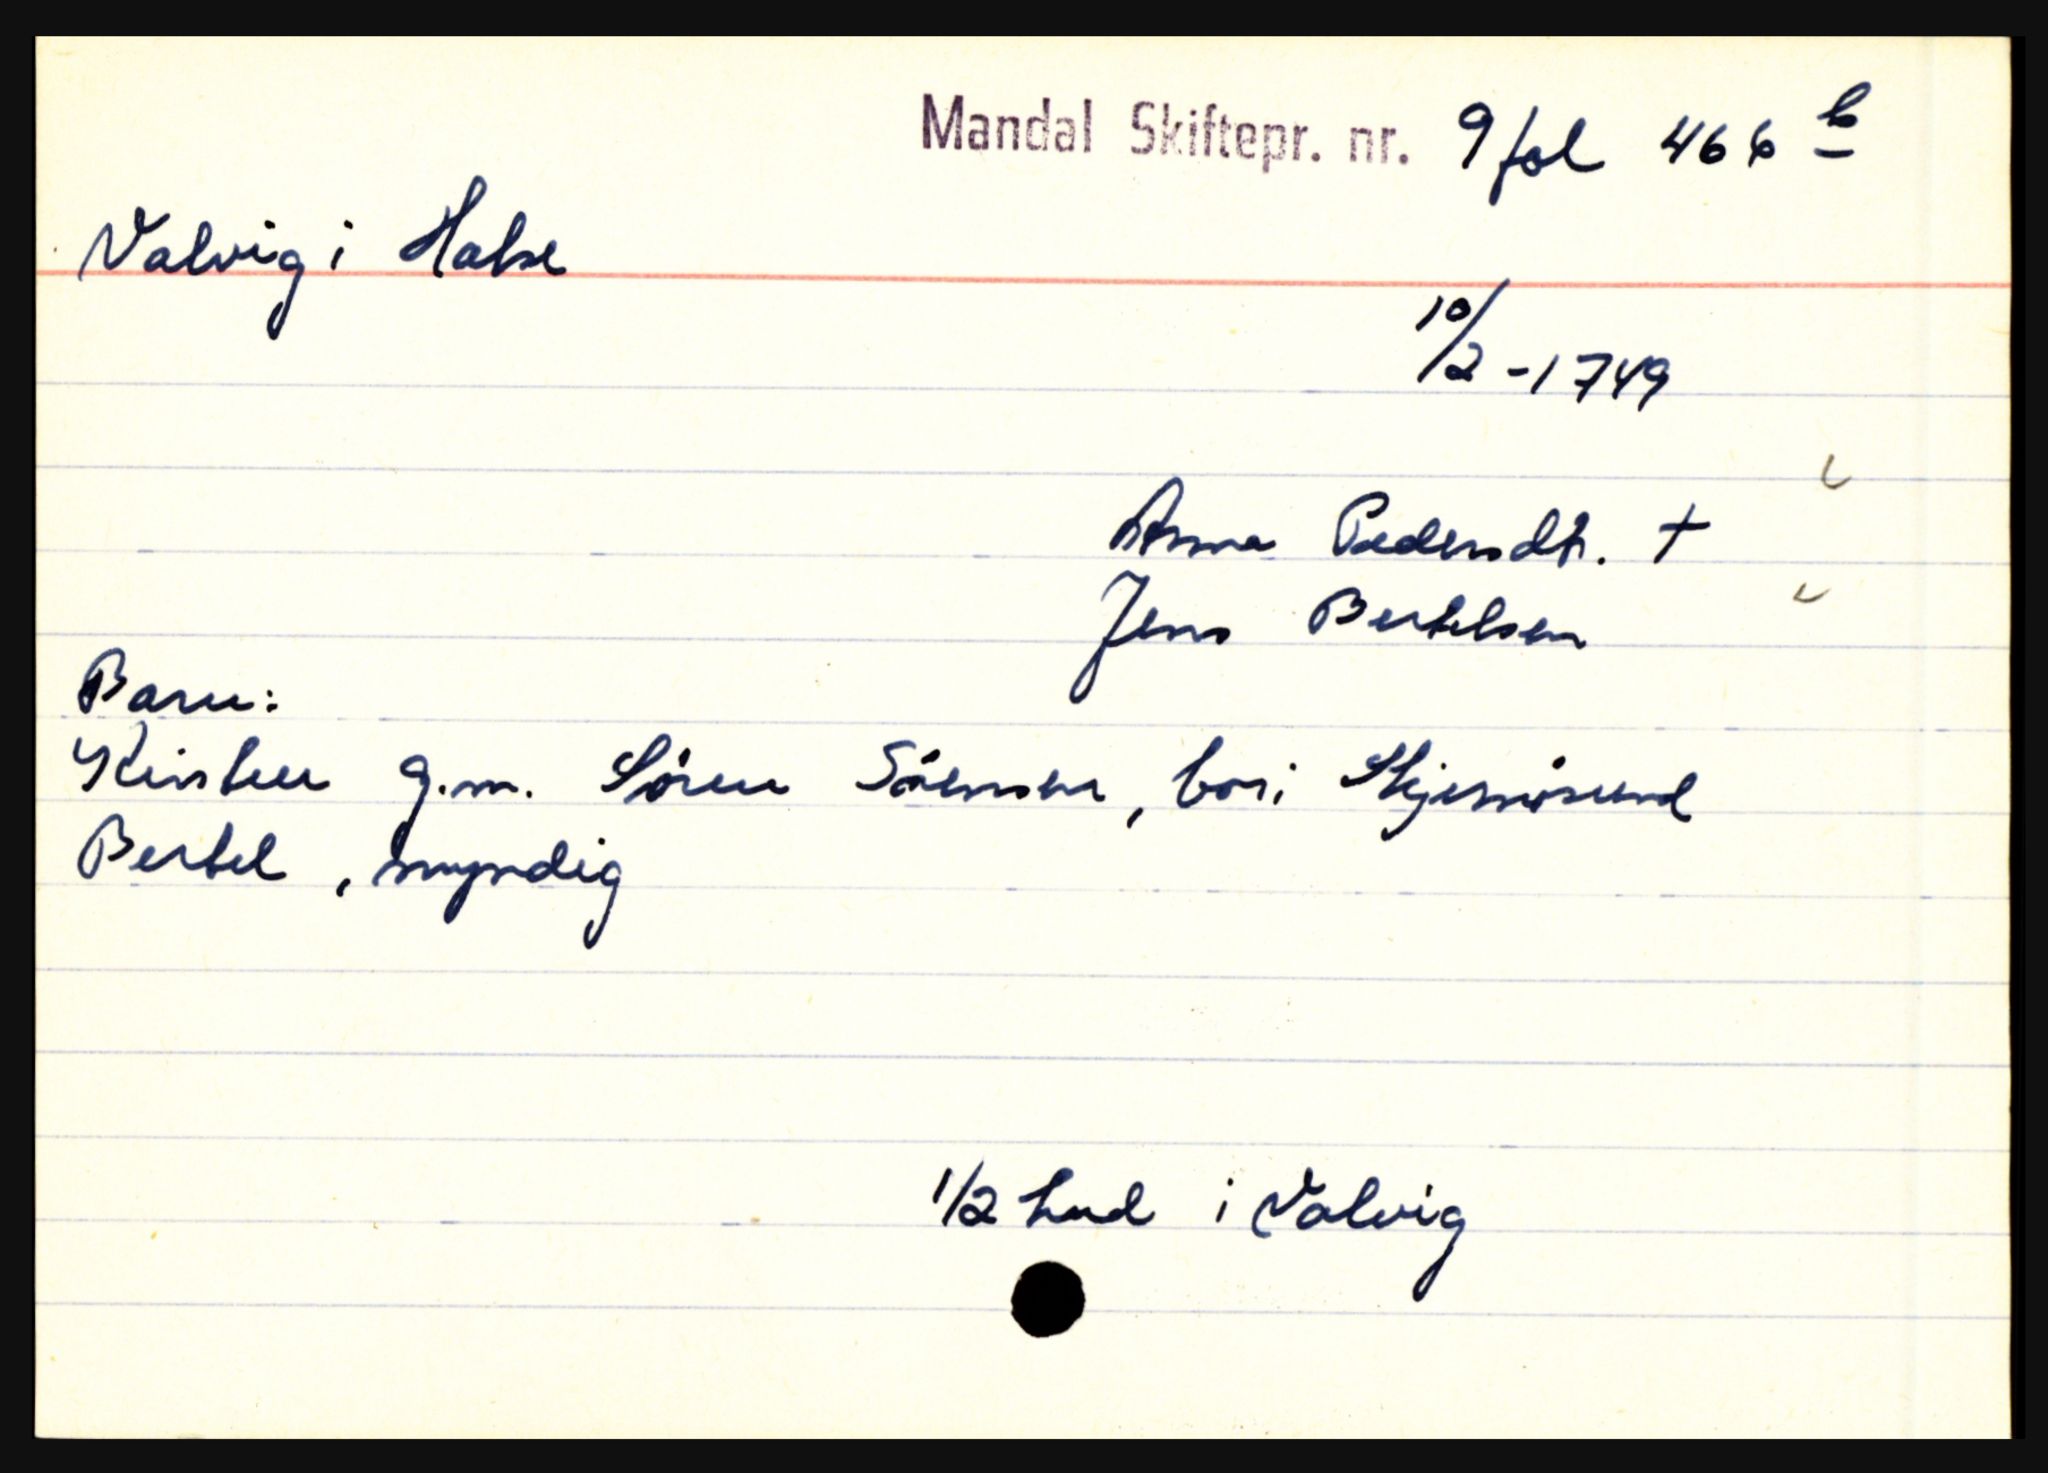 Mandal Skiftepr. nr. 9 fol 466 b
Valvig i Halse
10/2 - 1749
Anna Pedersdt. +
Jens Bertelsen
Barn:
Kirsten g.m. Søren Sørensen, bor i Skjernøsund
Bertel, myndig
1/2 hud i Valvig